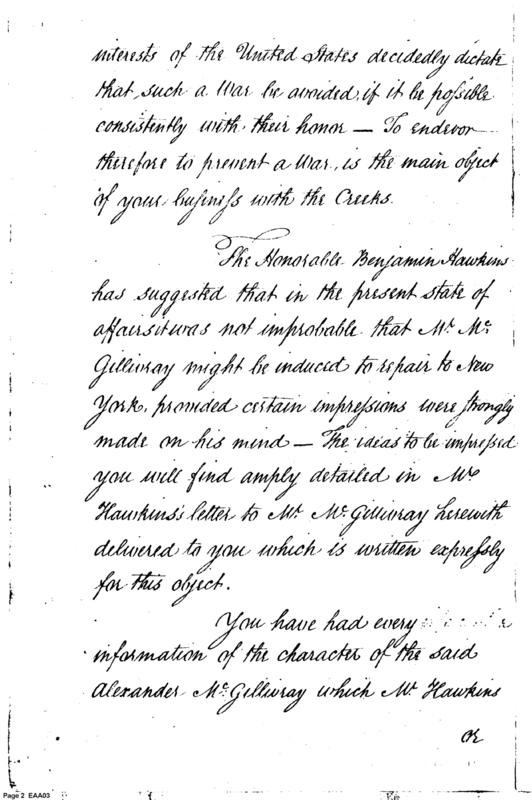 interests of the United States decidedly dictate
that, such a War be avoided, if it be possible
consistently with their honor — To endevor
therefore to prevent a War, is the main object
of your business with the Creeks.
The Honorable Benjamin Hawkins
has suggested that in the present state of
affairs it was not improbable that Mr. Mc.
Gillivray might be induced to repair to New
York, provided certain impressions were strongly
made on his mind — The ideas to be impressed
you will find amply detailed in Mr.
Hawkins's letter to Mr. McGillivray herewith
delivered to you which is written expressly
for this object.
You have had every
information of the character of the said
Alexander McGillivray which Mr. Hawkins
or
Page 2 EAA03